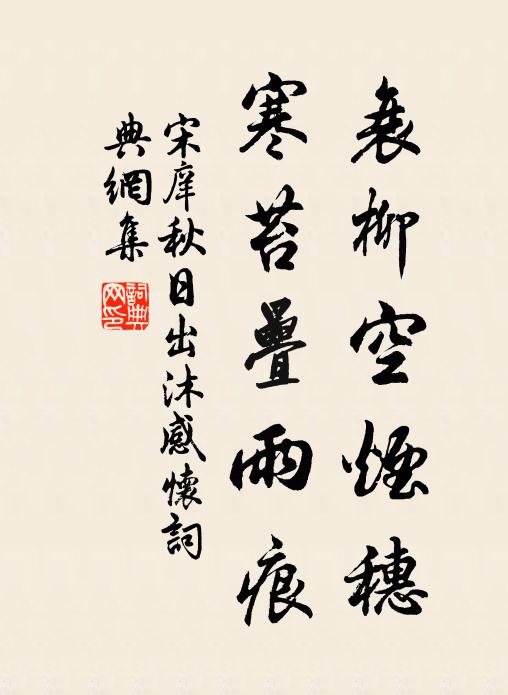 衰柳空煙穗
寒苔疊雨痕
宋庠秋日出沐感懷詞
典網集
詞典網印